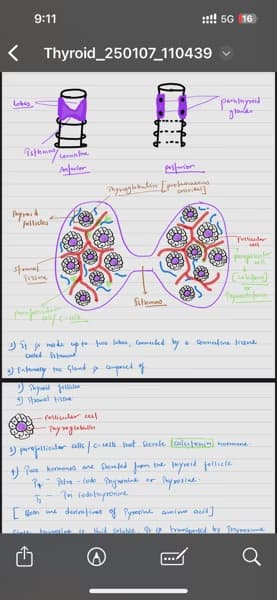 9:11
5G 16
Thyroid_250107_110439
Lobes
parathyroid
glands
Isthmus/
connective
Anterior
posterior
Thyroglobulin [proteinaceous
material]
Thyroid
follicles
Follicular
cell
parafollicular
cell
[calcitonin]
or
Thyrocalcitonin
Stromal
tissue
parafollicular
cell/c-cells
Isthmus
1) It is made up to two lobes, connected by a connective tissue
called Isthmus
2) Internally the Gland is composed of
1) Thyroid follicles
2) Stromal tissue
follicular cell
Thyroglobulin
3) parafollicular cells / c-cells that secrete calcitonin hormone
4) Two hormones are secreted from the thyroid follicle
T4 - Tetra-iodo thyronine or Thyroxine.
T3 - Tri iodothyronine
[ Both are derivatives of Tyrosine amino acid]
is lipid soluble. It is transported by